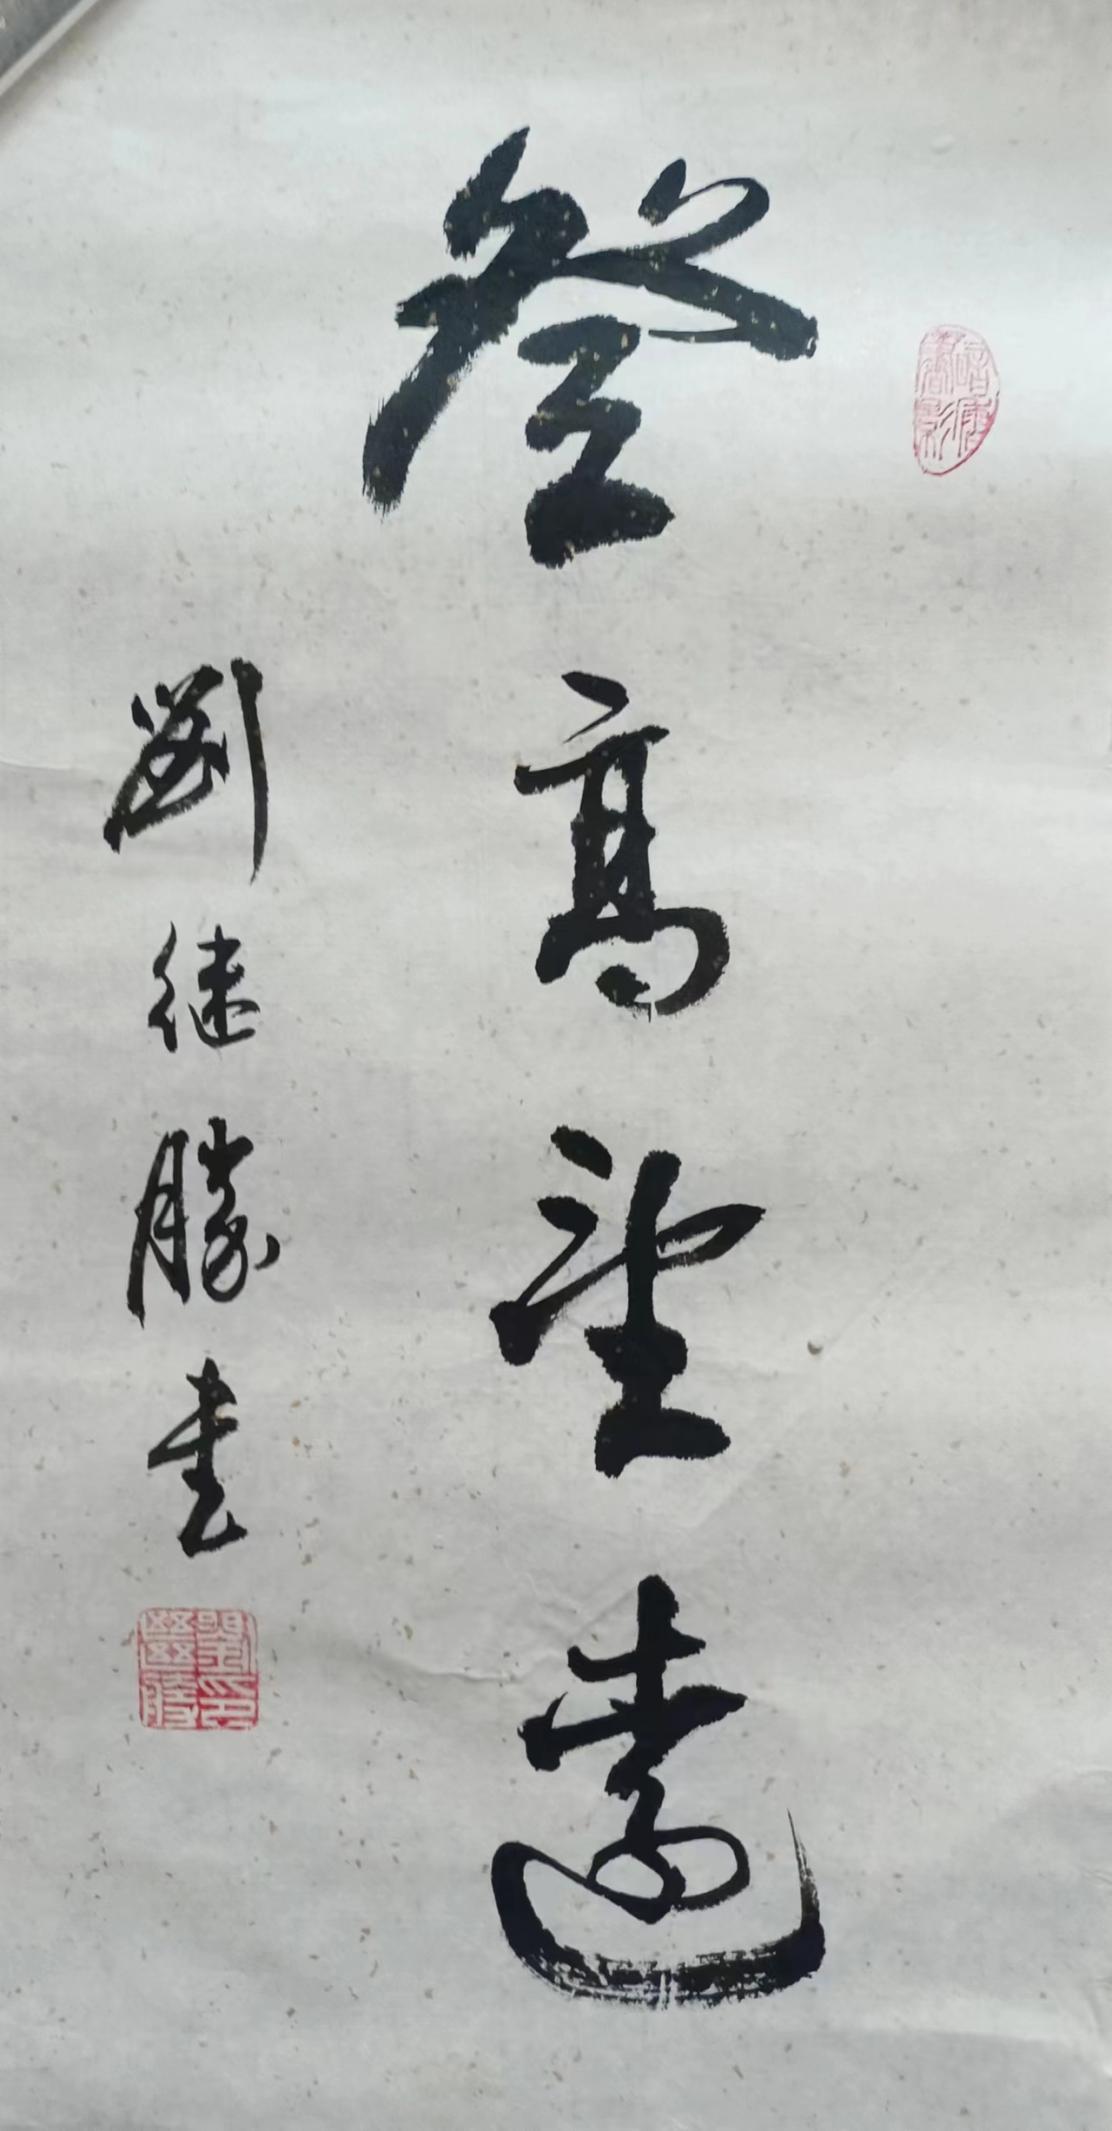 登高望遠
劉继勝书